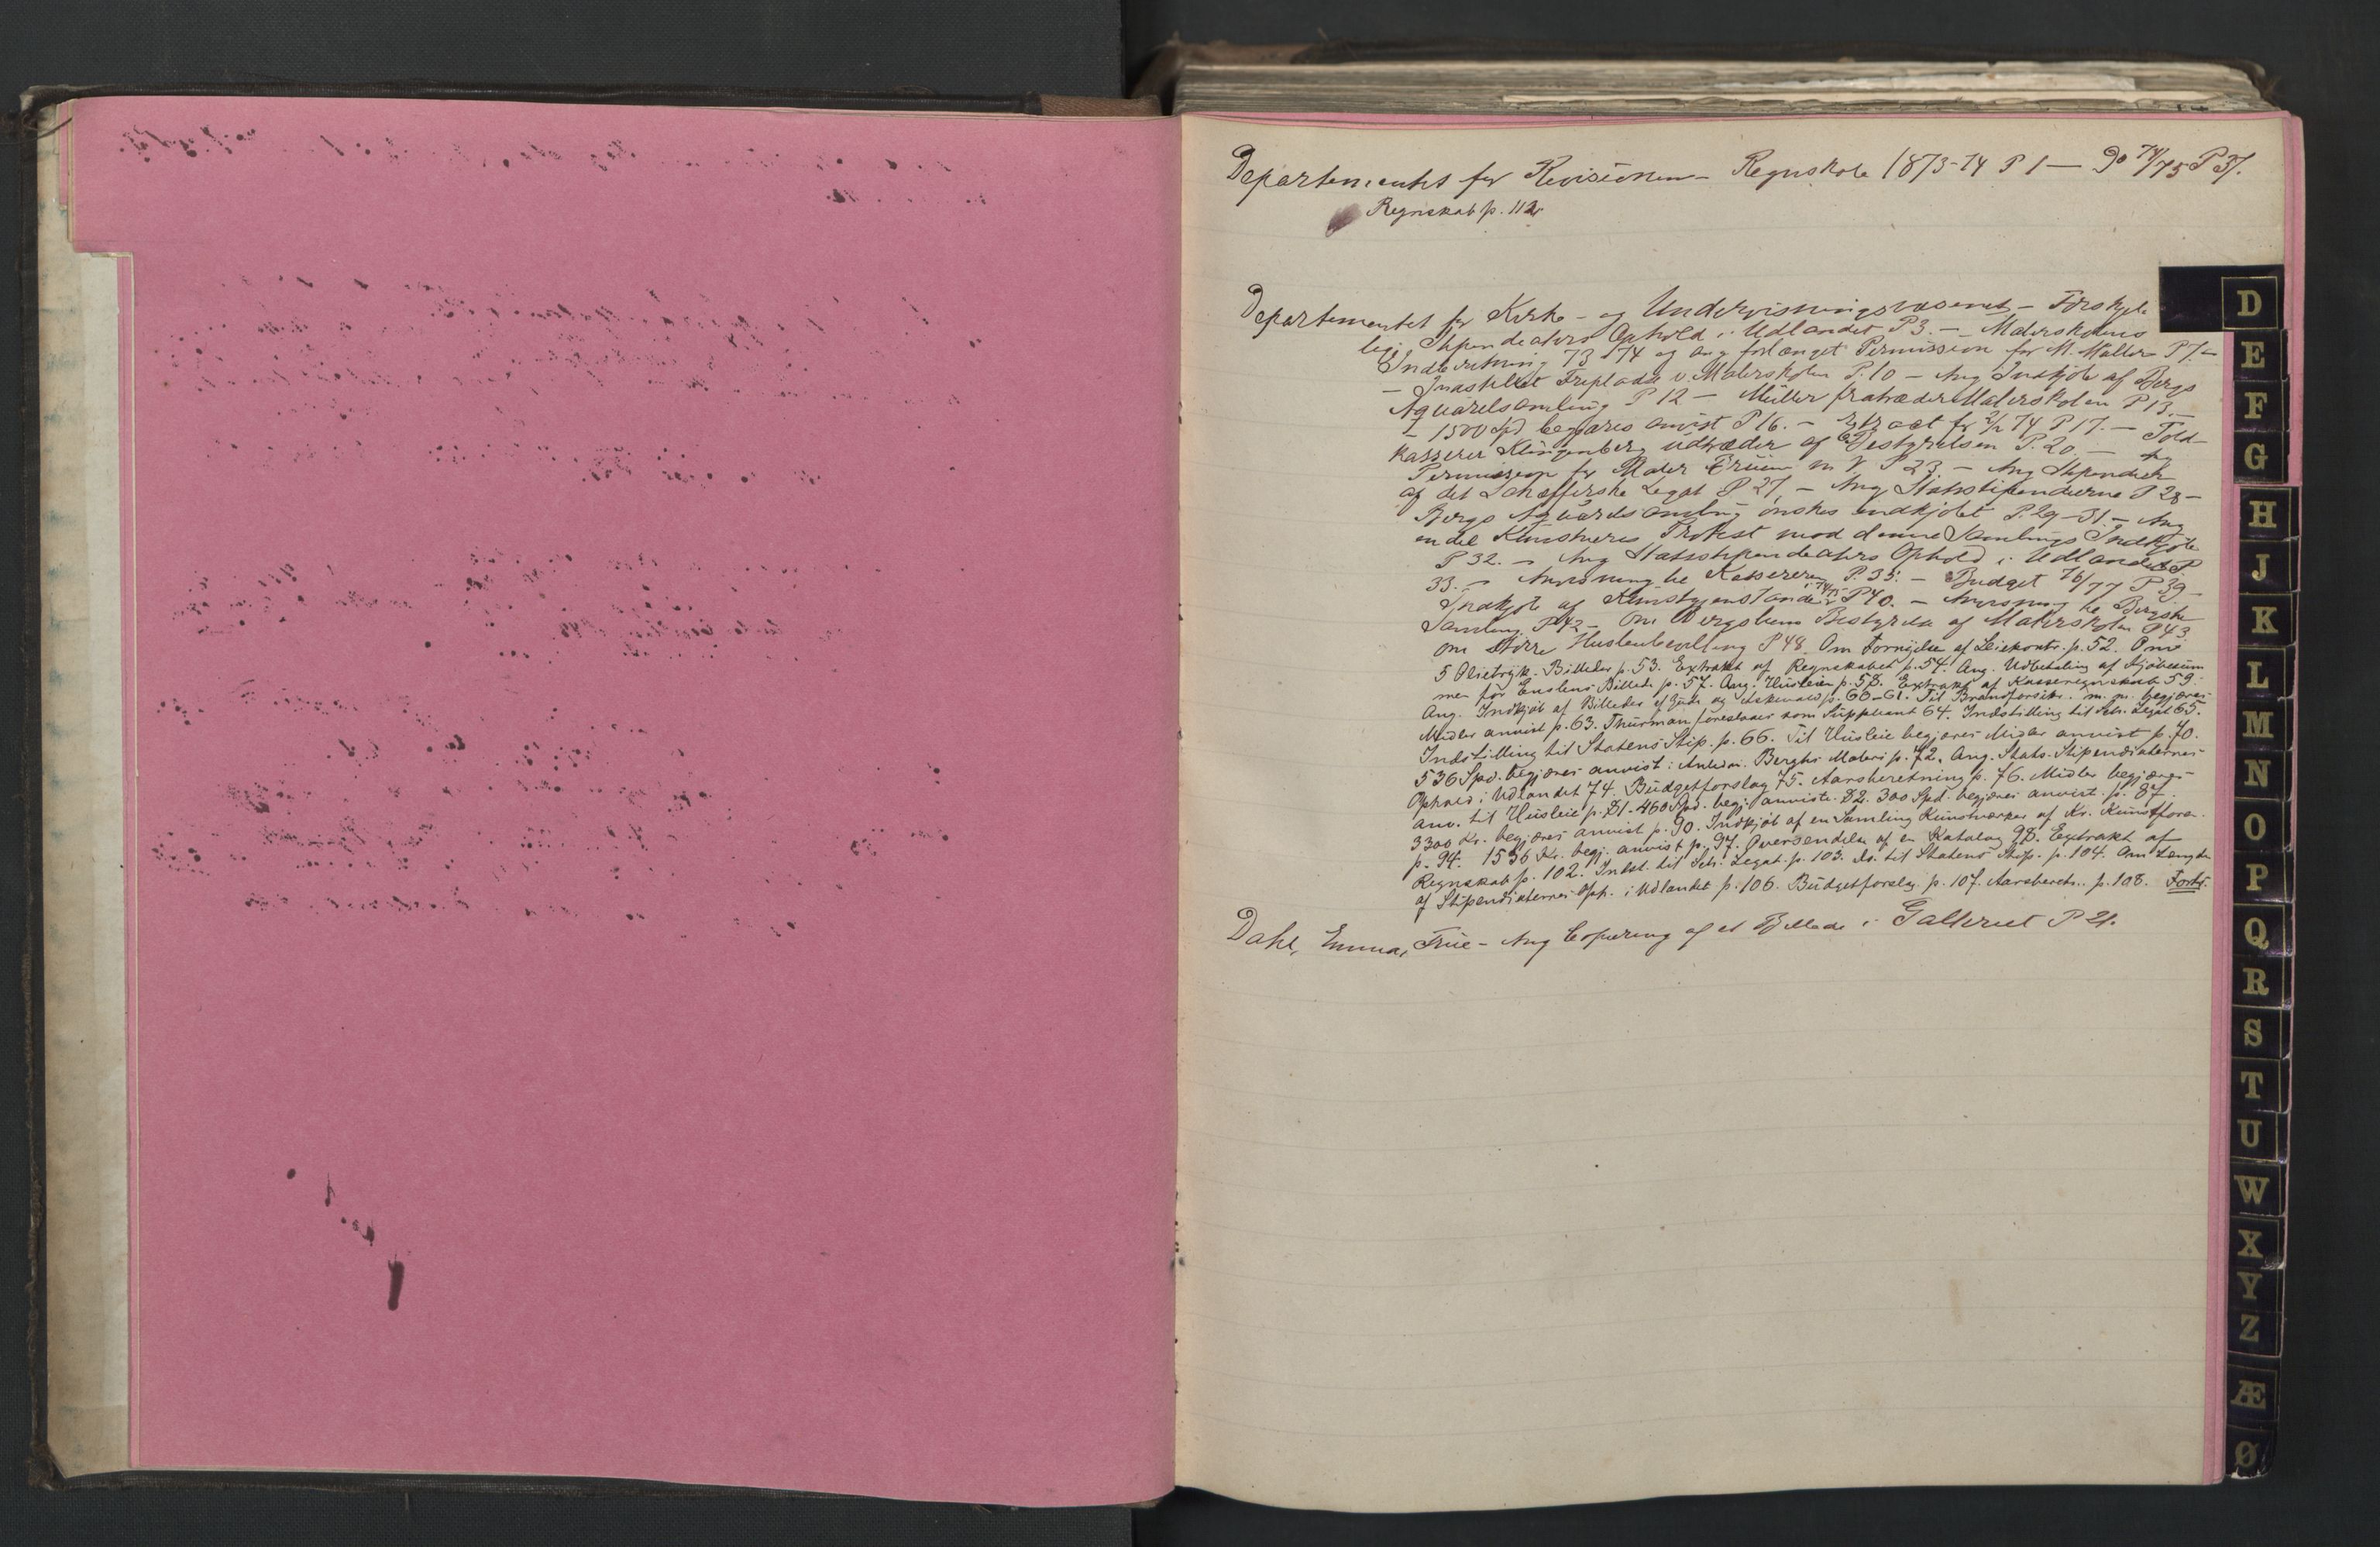 Departementet for Revisionen - Regnskab 1873-74 P 1 — Do 74/75 P 37.
Regnskab p. 112
Departementet for Kirke- og Undervisningsvæsenet - Forskjel-
lige Stipendiaters Ophold i Udlandet P 3. - Malerskolens
Indberetning 73/74 og ang forlænget Permission for M. Müller P 7. -
- Indstillet Friplads v. Malerskolen P. 10 - Ang Indkjøb af Bergs
Aquarelsamling P 12 - Müller fratræder Malerskolen P 13. -
- 1500 Spd begjæres anvist P 16. - Extract for 2/ 74 P 17. - Told-
kasserer Klingenberg udtræder af Bestyrelsen P. 20. - Ang
Permission for Maler Bruun m V P 23. - Ang Stipendiet
af det Schæfferske Legat P 27. - Ang Statsstipendierne P 28 -
Bergs Aquarelsamling ønskes indkjøbt P. 29-31. - Ang
en del Kunstneres Protest mod denne Samlings Indkjøb
P 32. - Ang Statsstipendiaters Ophold i Udlandet P
33. - Anvisning til Kassereren P. 35. - Budget 76/77 P 39 -
Indkjøb af Kunstgjenstande i 74/75 P 40. - Anvisning til Bergske
Samling P 42 - Om Bergsliens Bestyrelse af Malerskolen P 43
om større Husleiebevilling P 48. Om Fornyelse af Leiekontr. p. 52. Om
5 Olietryk-Billeder p. 53. Extrakt af Regnskabet p. 54. Ang. Udbetaling af Kjøbesum
men for Billed. p. 57. Ang. Husleien p. 58. Extrakt af Kasseregnskab 59. -
Ang. Indkjøb af Billeder af Gude og Askevold p. 60-61. Til Brandforsikr. m. m. begjæres
Midler anvist p. 63. Thurman foreslaaes som Suppleant 64. Indstilling til Sch. Legat 65.
Indstilling til Statens Stip. p. 66. Til Husleie begjæres Midler anvist p. 70.
536 Spd. begjæres anvist i Anledn. Berghs Maleri p. 72. Ang. Stats-Stipendiaternes
Ophold i Udlandet 74. Budgetforslag 75. Aarsberetning p. 76. Midler begjæres
anv. til Husleie p. 81. 460 Spd. begj. anviste. 82. 300 Spd. begjæres anvist. p. 87.
3300 Kr. begjæres anvist p. 90. Indkjøb af en Samling Kunstværker af Kr. Kunstforen.
p. 94. 1536 Kr. begj. anvist p. 97. Oversendelse af en Katalog 98. Extrakt af
Regnskab p. 102. Indst. til Sch. Legat. p. 103. do. til Statens Stip. p. 104. Om Længden
af Stipendiaternes Oph. i Udlandet p. 106. Budgetforslag p. 107. Aarsberetn. p. 108. Forts.
Dahl, Emma, Frue - Ang Copiering af et Billede i Galleriet P 21.
D
E
F
G
H
J
K
L
M
N
O
P
Q
R
S
T
U
W
X
Y
Z
Æ
Ø